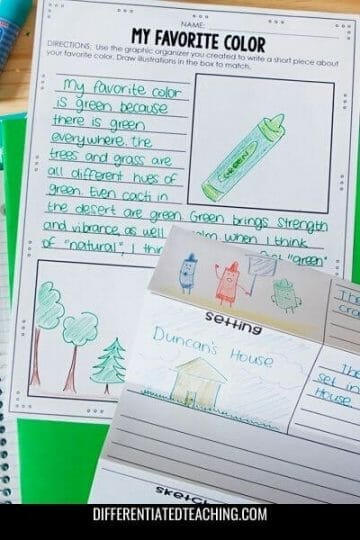 NAME:
MY FAVORITE COLOR
DIRECTIONS: Use the graphic organizer you created to write a short piece about
your favorite color. Draw illustrations in the box to match.
My favorite color
is green because
there is green
everywhere. The
trees and grass are
all different hues of
green. Even cacti in
the desert are green. Green brings strength
and vibrance, as well when I think
of "natural", I "green"
GREEN
setting
Duncan's House
The
set in
House
sketch
DIFFERENTIATEDTEACHING.COM